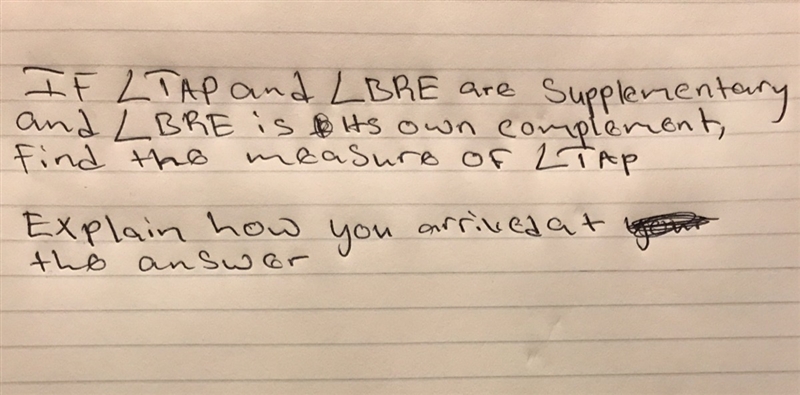 IF ∠TAP and ∠BRE are Supplementary
and ∠BRE is its own complement,
Find the measure of ∠TAP
Explain how you arrived at
the answer